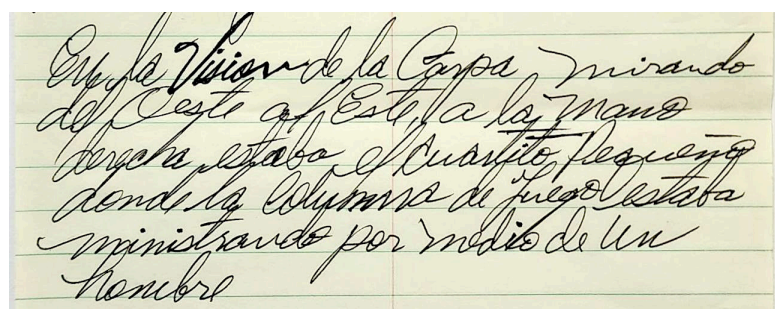 En la Vision de la Carpa mirando
del Oeste al Este, a la mano
derecha estaba el Cuartito Pequeño
donde la Columna de fuego estaba
ministrando por medio de un
hombre